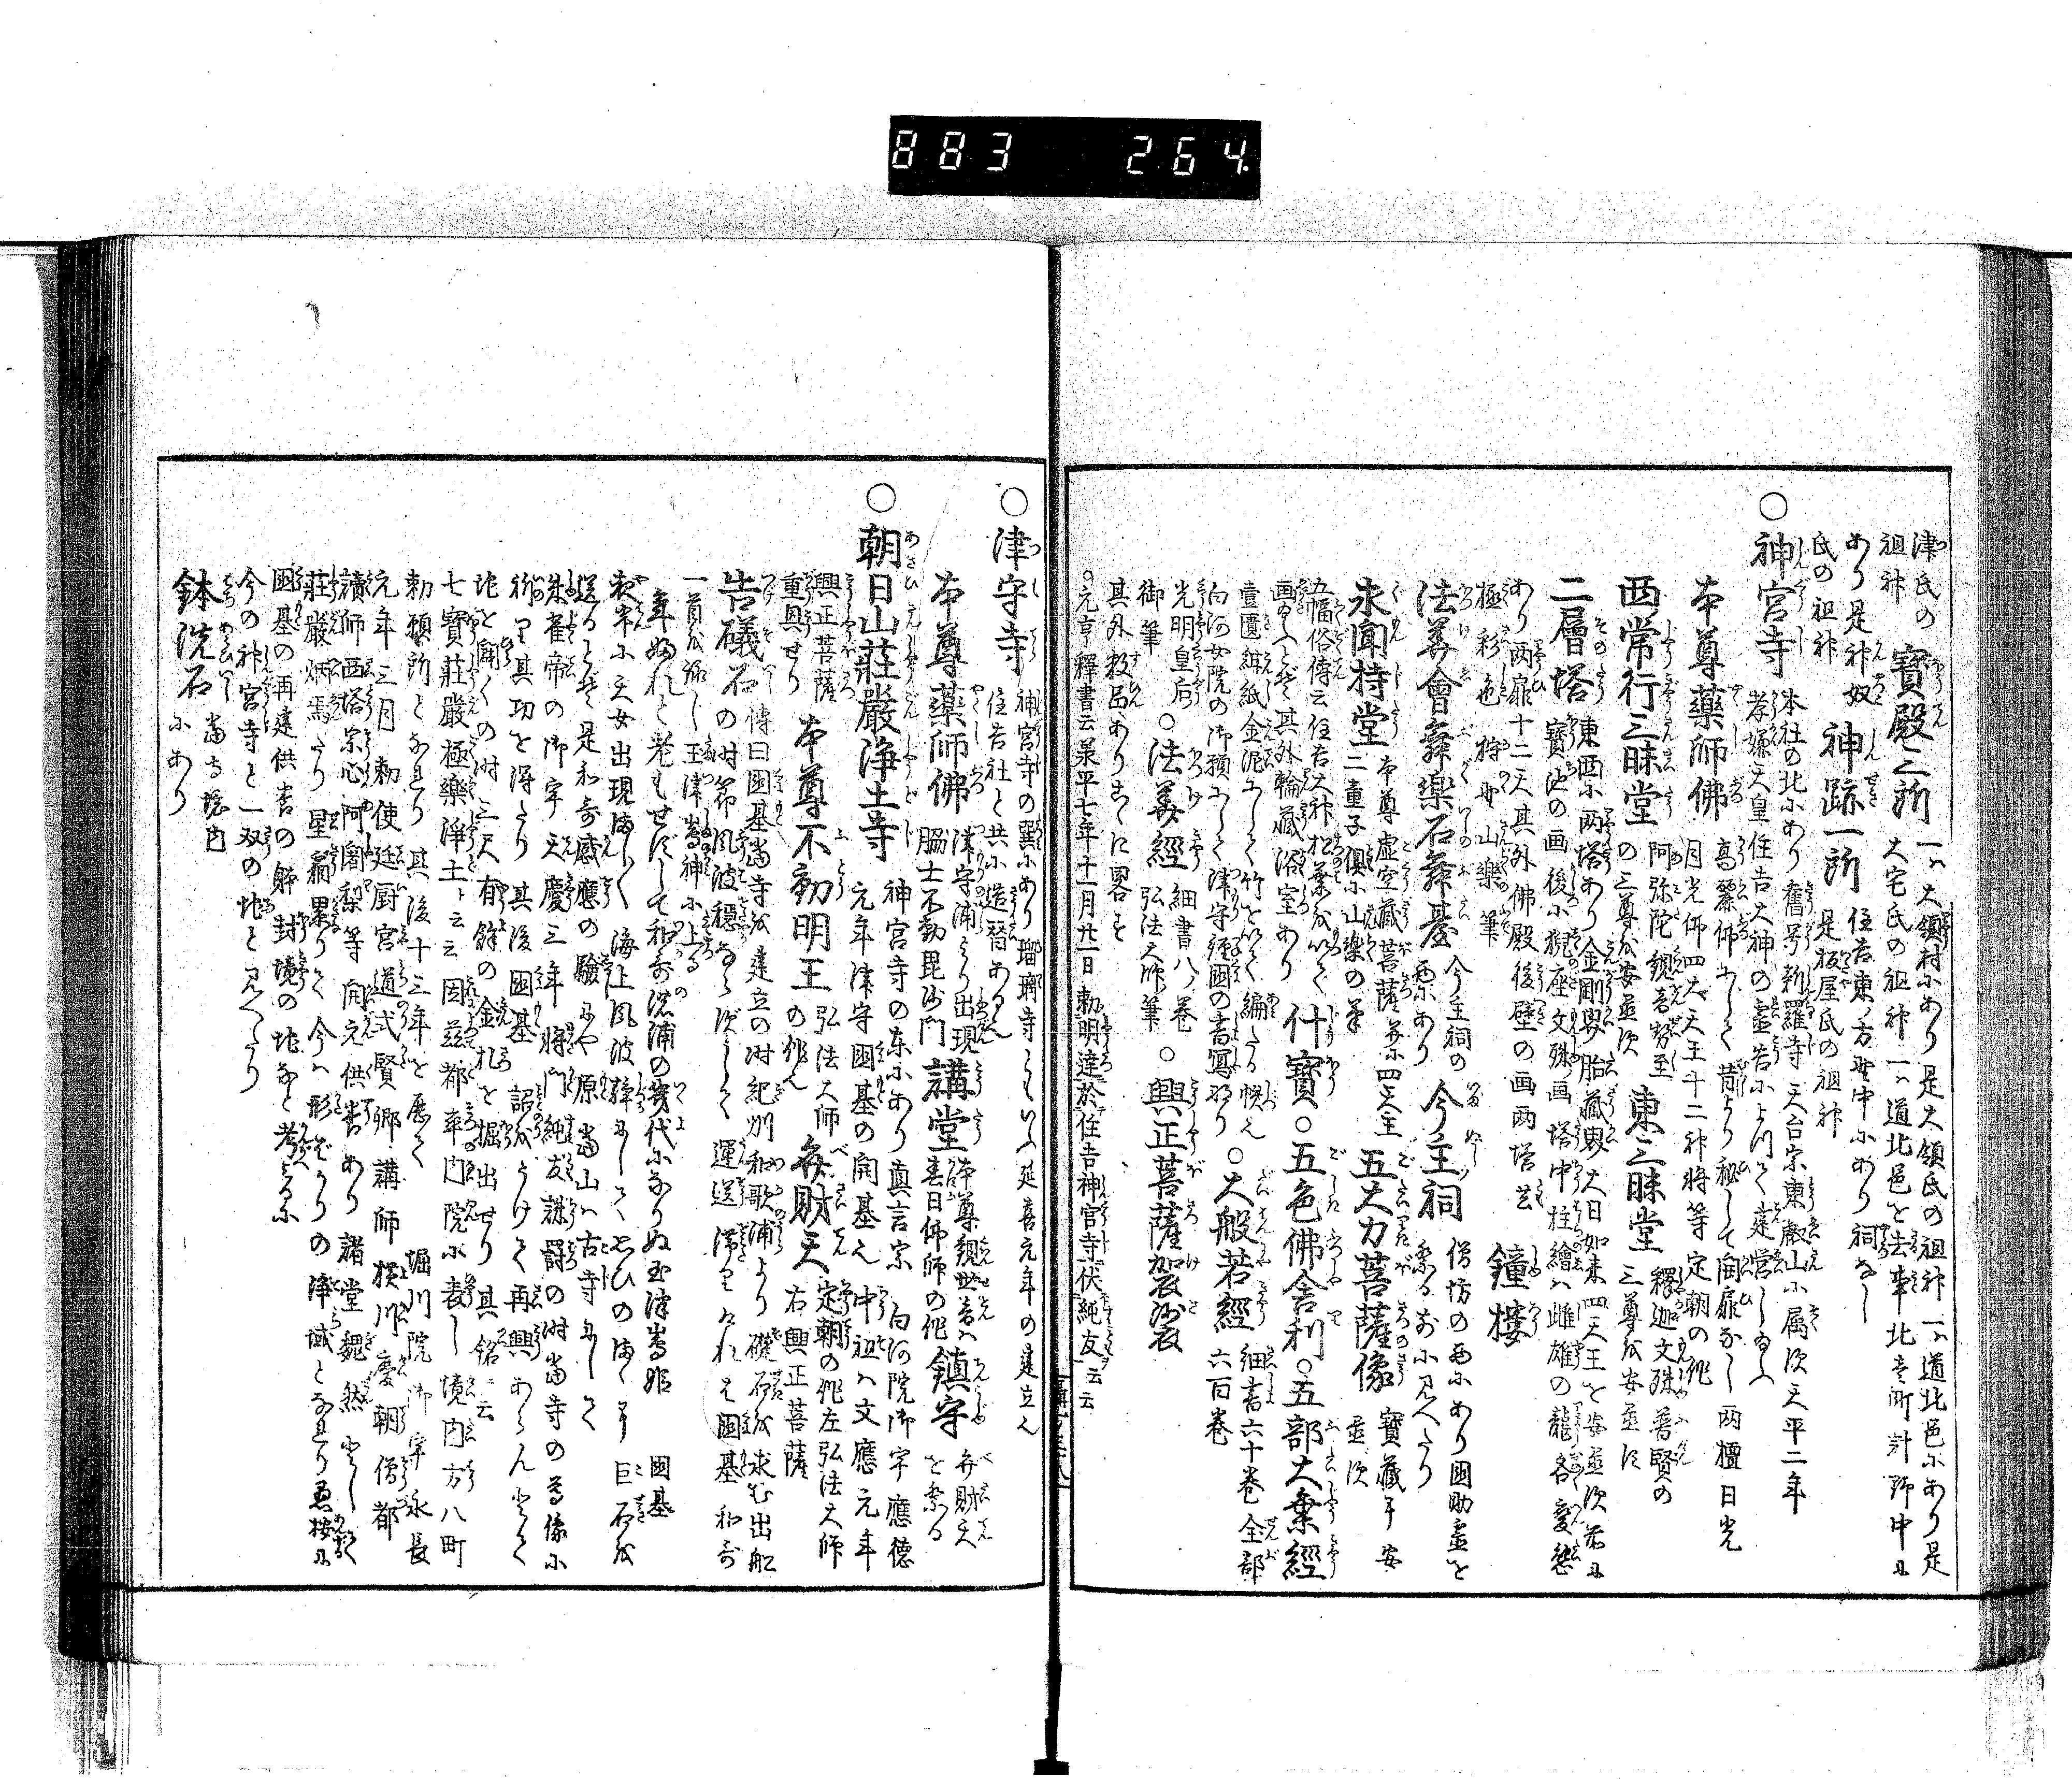 883 264.
津氏の
祖神
寶殿二所
一ハ大領村にあり是大領氏の祖神一ハ道北邑にあり是
大宅氏の祖神一ハ道北邑を去事北壱町計野中に
あり是神奴
氏の祖神
神跡一所
住吉東ノ方野中にあり祠なし
是板屋氏の祖神
○神宮寺
本社の北にあり舊号新羅寺天台宗東叡山に属す天平二年
孝嫌天皇住吉大神の霊告によつて建営し給ふ
本尊藥師佛
高麗佛にして昔より秘して開扉なし両檀日光
月光仏四大天王十二神将等定朝の作
西常行三昧堂
阿弥陀観音勢至
の三尊を安置す
東三昧堂
釋迦文殊普賢の
三尊を安置す
二層塔
東西に両塔あり金剛界胎藏界大日如来四天王を安置す前に
寶池の画後に猊座文殊画塔中柱繪ハ雌雄の龍各變態
あり両扉十二天其外佛殿後壁の画両塔共
極彩色狩野山樂筆
鐘樓
法華會舞樂石舞臺
今主祠の
西にあり
今主祠
僧坊の西にあり国助霊を
祭る前に見へたり
求聞持堂
本尊虚空藏菩薩并に四天王
二童子倶に山樂の筆
五大力菩薩像
寶藏に安
置す
五幅俗傳云住吉大神松葉を以て
画給ふとぞ其外輪藏浴室あり
什寶
○五色佛舍利
○五部大乗經
壹匱紺紙金泥にして竹を以て編たる帙也
白河女院の御願にして津守經國の書寫なり
○大般若經
細書六十巻全部
六百巻
光明皇后
御筆
○法華經
細書八巻
弘法大師筆
○興正菩薩袈裟
其外数品ありこゝに畧す
○元亨釋書云承平七年十一月廿一日勅明達於住吉神宮寺伏純友云云
○津守寺
神宮寺の巽にあり瑠璃寺ともいふ延喜元年の建立也
住吉社と共に造替あり
本尊藥師佛
津守浦より出現
脇士不動毘沙門
講堂
本尊観世音ハ
春日佛師の作
鎮守
弁財天
を祭る
○朝日山莊嚴淨土寺
神宮寺の东にあり真言宗 白河院御宇應徳
元年津守国基の開基也中祖ハ文應元年
興正菩薩
重興せり
本尊不動明王
弘法大師
の作也
弁財天
定朝の作左弘法大師
右興正菩薩
告礒石
傳曰国基當寺を建立の時紀州和歌浦より礎石を求む出船
の時節風波穏ならずして運送滞りけれは国基和哥
一首を詠し玉津嶌神に上る
年ふれと老もせすして和哥浦の幾代になりぬ玉津嶌姫 国基
夜半に天女出現ましまして海上風波静にして思ひのまゝに巨石を
送るとぞ是和哥感應の驗にや原當山ハ古寺にして
朱雀帝の御宇天慶三年将門純友誅罰の時當寺の尊像に
祈り其功を得たり其後国基詔をうけて再興あらんとて
地を開くの時三尺有餘の金札を掘出せり其銘ニ云
七寶莊嚴極樂淨土ト云云因茲都率内院に表し境内方八町
勅願所となれり其後十三年を歴て堀川院御宇永長
元年三月勅使廷厨宮道式賢郷講師横川慶朝僧都
讀師西塔宗心阿闍梨等開元供養あり諸堂巍然として
莊嚴炳焉たり星霜累りて今ハ形ばかりの淨域となれり愚按に
国基の再建供養の時封境の地など考るに
今の神宮寺と一双の地と見へたり
鉢洗石
當寺境内
にあり